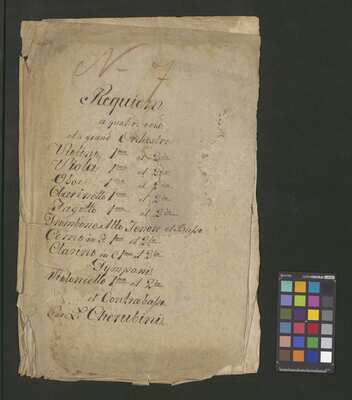 N 7
Requiem
a quatre voix
et a grand Orchestre
Violino 1mo et 2do
Viola 1ma et 2da
Oboe 1mo et 2do
Clarinetto 1mo et 2do
Fagotto 1mo et 2do
Trombone Alto Tenore et Basso
Corno in 1mo et 2do
Clarino in C 1mo et 2do
Tympani
Violoncello 1mo et 2do
et Contrabasso
L. Cherubini